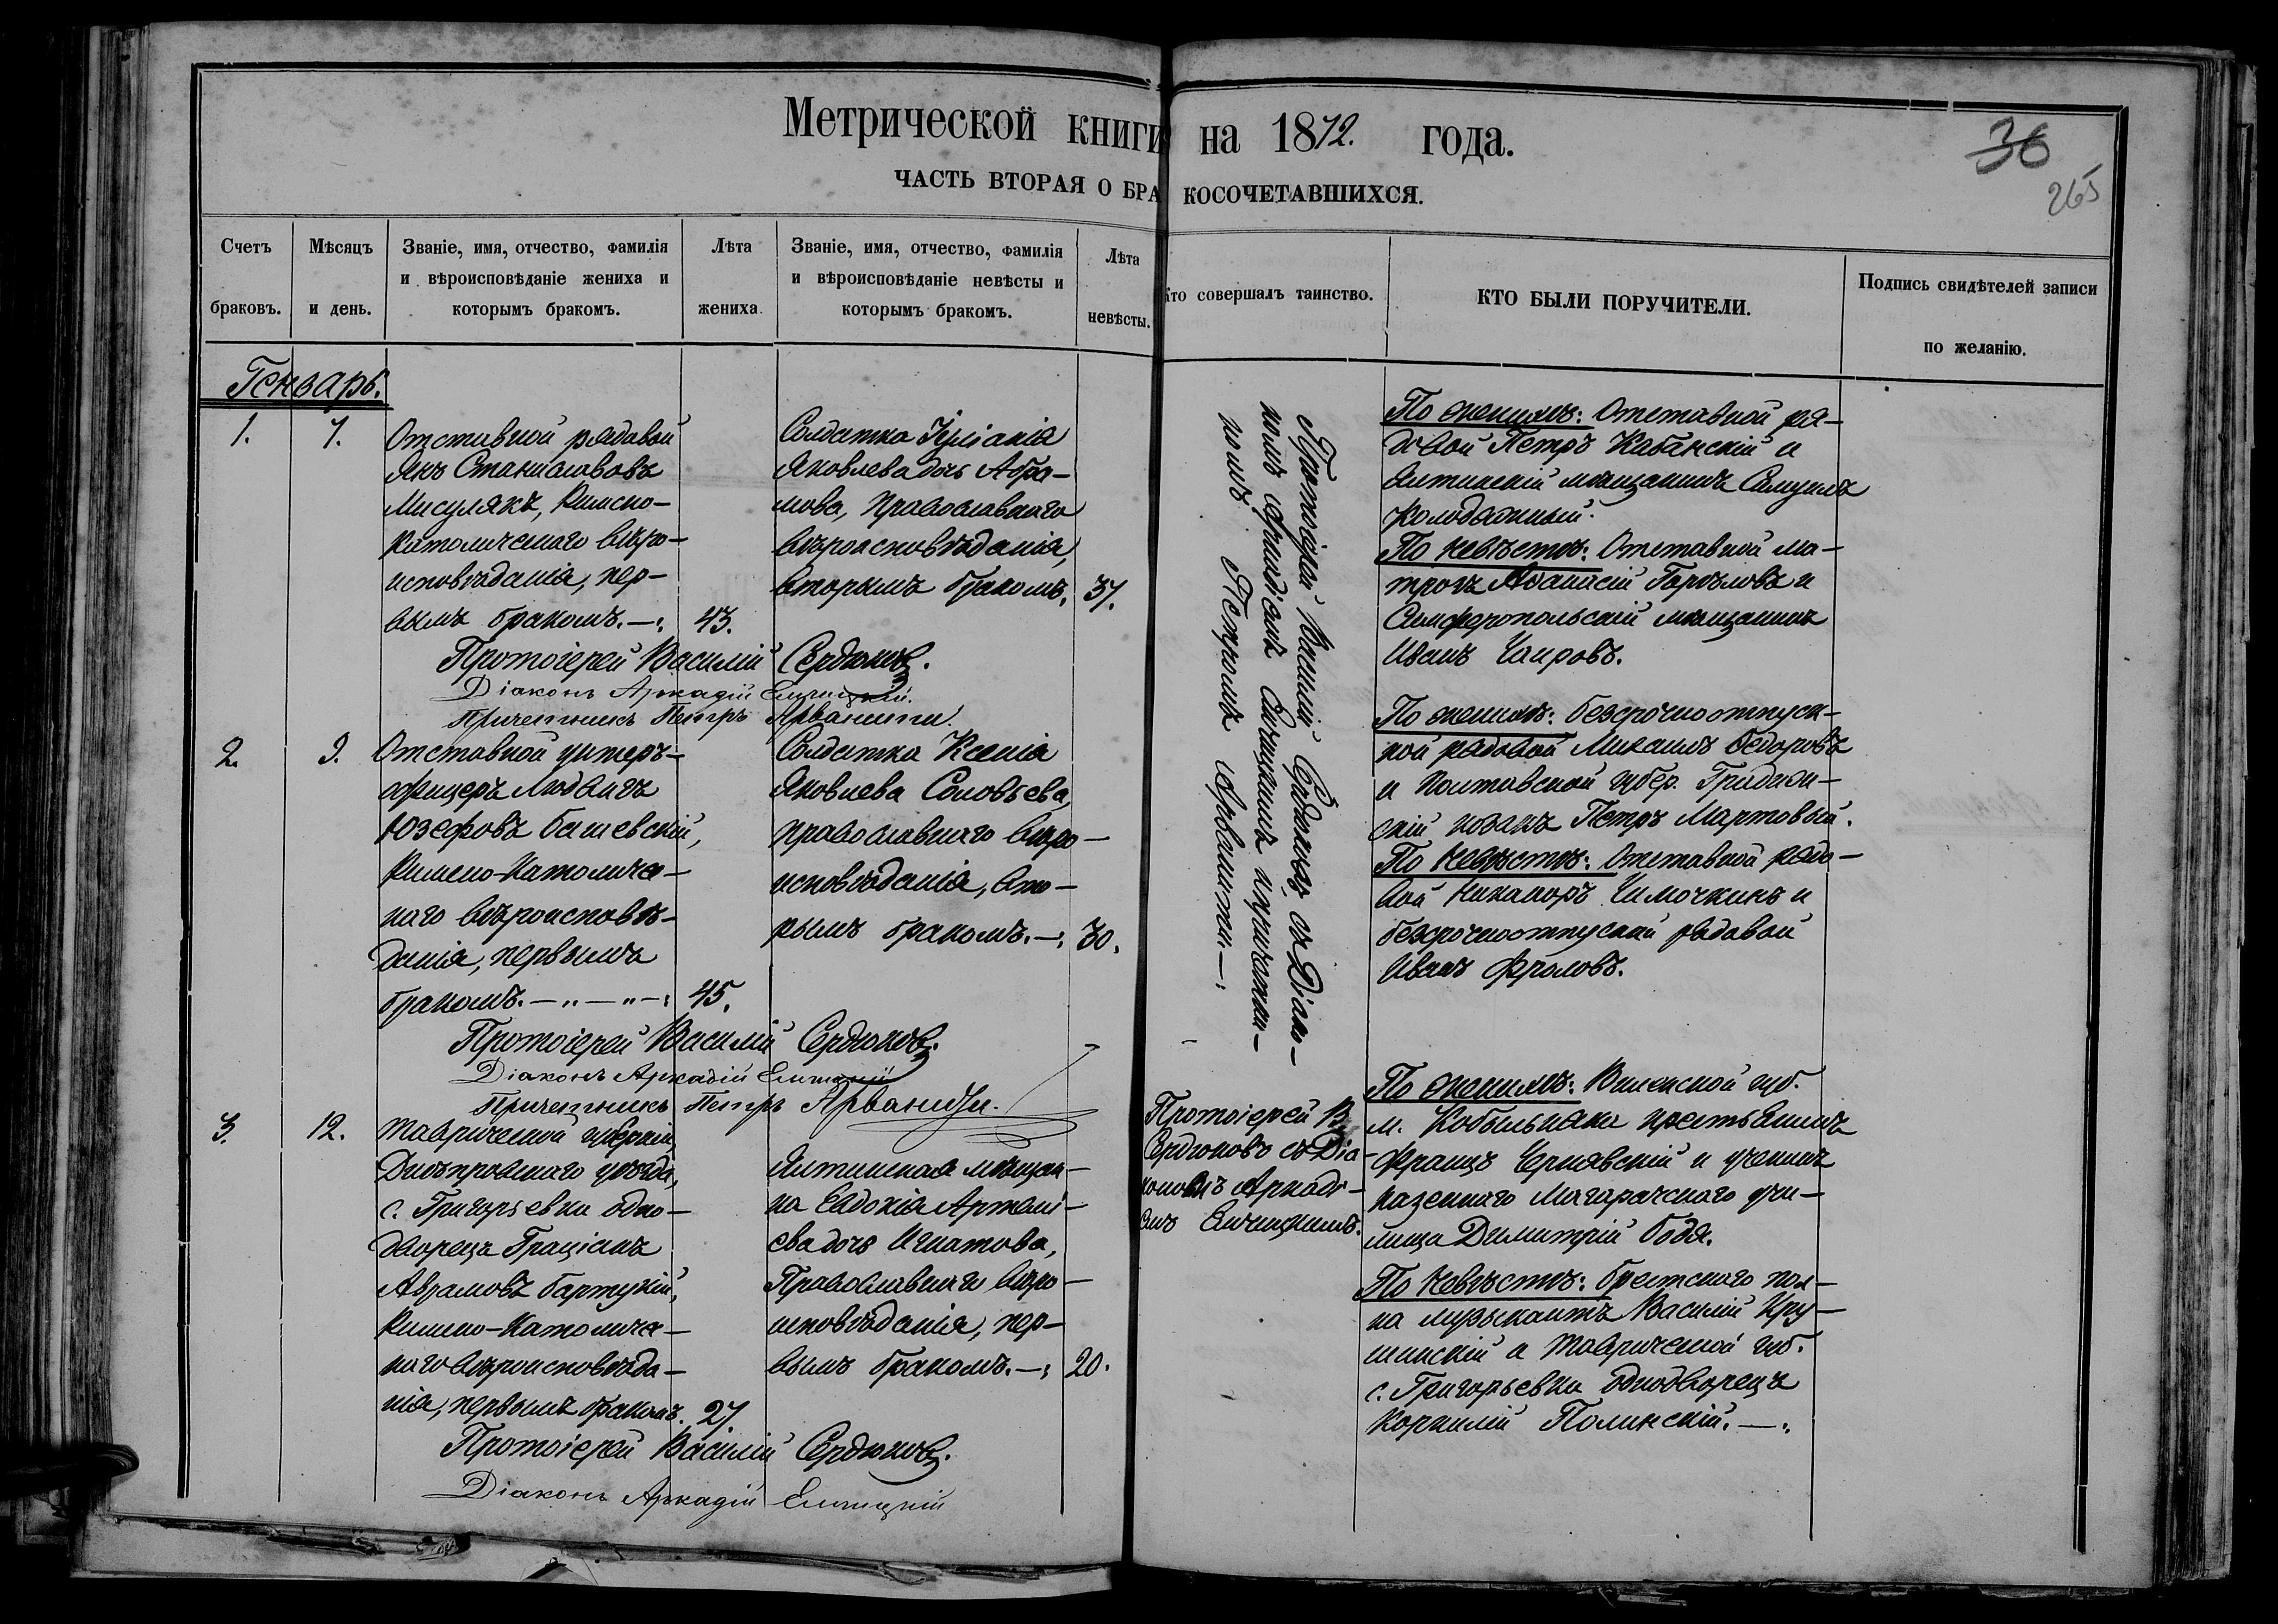 Метрической книги на 1872. года.
36
265
ЧАСТЬ ВТОРАЯ О БРАКОСОЧЕТАВШИХСЯ.
Счетъ браковъ.
Мѣсяцъ и день.
Званіе, имя, отчество, фамилія и вѣроисповѣданіе жениха и которымъ бракомъ.
Лѣта жениха.
Званіе, имя, отчество, фамилія и вѣроисповѣданіе невѣсты и которымъ бракомъ.
Лѣта невѣсты.
Кто совершалъ таинство.
КТО БЫЛИ ПОРУЧИТЕЛИ.
Подпись свидѣтелей записи по желанію.
Генварь.
1.
7.
Отставной рядовой
Янъ Станиславовъ
Мисулякъ, Римско-
католическаго вѣро-
исповѣданія, пер-
вымъ бракомъ.—:
43.
Солдатка
Яковлева дочь Абра-
мова, Православнаго
вѣроисповѣданія,
вторымъ бракомъ,
37.
Протоіерей Василій Сердюковъ,
съ Діако-
номъ Аркадіемъ
и причетни-
комъ Петромъ Арванити.—:
По женихѣ: Отставной ря-
довой Петръ Кабанскій и
Ялтинскій мѣщанинъ Самуилъ
Колодяжный.
По невѣстѣ: Отставной ма-
тросъ Аѳанасій Горѣловъ и
Симферопольскій мѣщанинъ
Иванъ Чаировъ.
Протоіерей Василій Сердюковъ.
Діаконъ Аркадій
Причетникъ Петръ Арванити.
2.
9.
Отставной унтеръ-
офицеръ Людвигъ
Юзефовъ
Римско-Католиче-
скаго вѣроисповѣ-
данія, первымъ
бракомъ.—„—„—:
45.
Солдатка Ксенія
Яковлева Соловьева,
православнаго вѣро-
исповѣданія, вто-
рымъ бракомъ.—:
30.
По женихѣ: безсрочноотпуск-
ной рядовой Михаилъ Ѳедоровъ
и Полтавской губер.
козакъ Петръ Мартовый.
По невѣстѣ: Отставной рядо-
вой Никаноръ Чимочкинъ и
безсрочноотпускной рядовой
Иванъ Фроловъ.
Протоіерей Василій Сердюковъ.
Діаконъ Аркадій
Причетникъ Петръ Арваниди.
3.
12.
Таврической губерніи,
Днѣпровскаго уѣзда,
с. Григорьевки одно-
дворецъ Граціанъ
Абрамовъ Бартукій,
Римско-Католиче-
скаго вѣроисповѣда-
нія, первымъ бракомъ.
27.
Ялтинская мѣщан-
ка Евдокія Артемі-
ева дочь Игнатова,
Православнаго вѣро-
исповѣданія, пер-
вымъ бракомъ.—:
20.
Протоіерей В.
Сердюковъ съ Діа-
кономъ Аркаді-
емъ
По женихѣ: Виленской губ.
м. Кобыльники крестьянинъ
Францъ Чернявскій и ученикъ
казеннаго Магарачскаго учи-
лища Димитрій Бодя.
По невѣстѣ: Брестскаго пол-
ка музыкантъ Василій Кру-
шинскій и Таврической губ.
с. Григорьевки однодворецъ
Корнилій Полинскій.—:
Протоіерей Василій Сердюковъ.
Діаконъ Аркадій